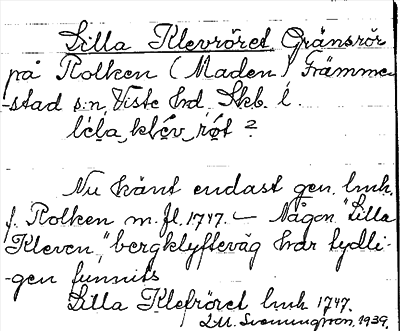 Lilla Klevröret Gränsrör
på Rolken (Maden) Främme-
-stad s:n, Viste hd. Skb. l.
lɩla, klev, röt ?
Nu känt endast gen. lmk.
f. Rolken m. fl. 1747. – Någon "Lilla
Kleven", bergklyfteväg har tydli-
-gen funnits
Lilla Klefröret lmk 1747.
Svenungsson. 1939.